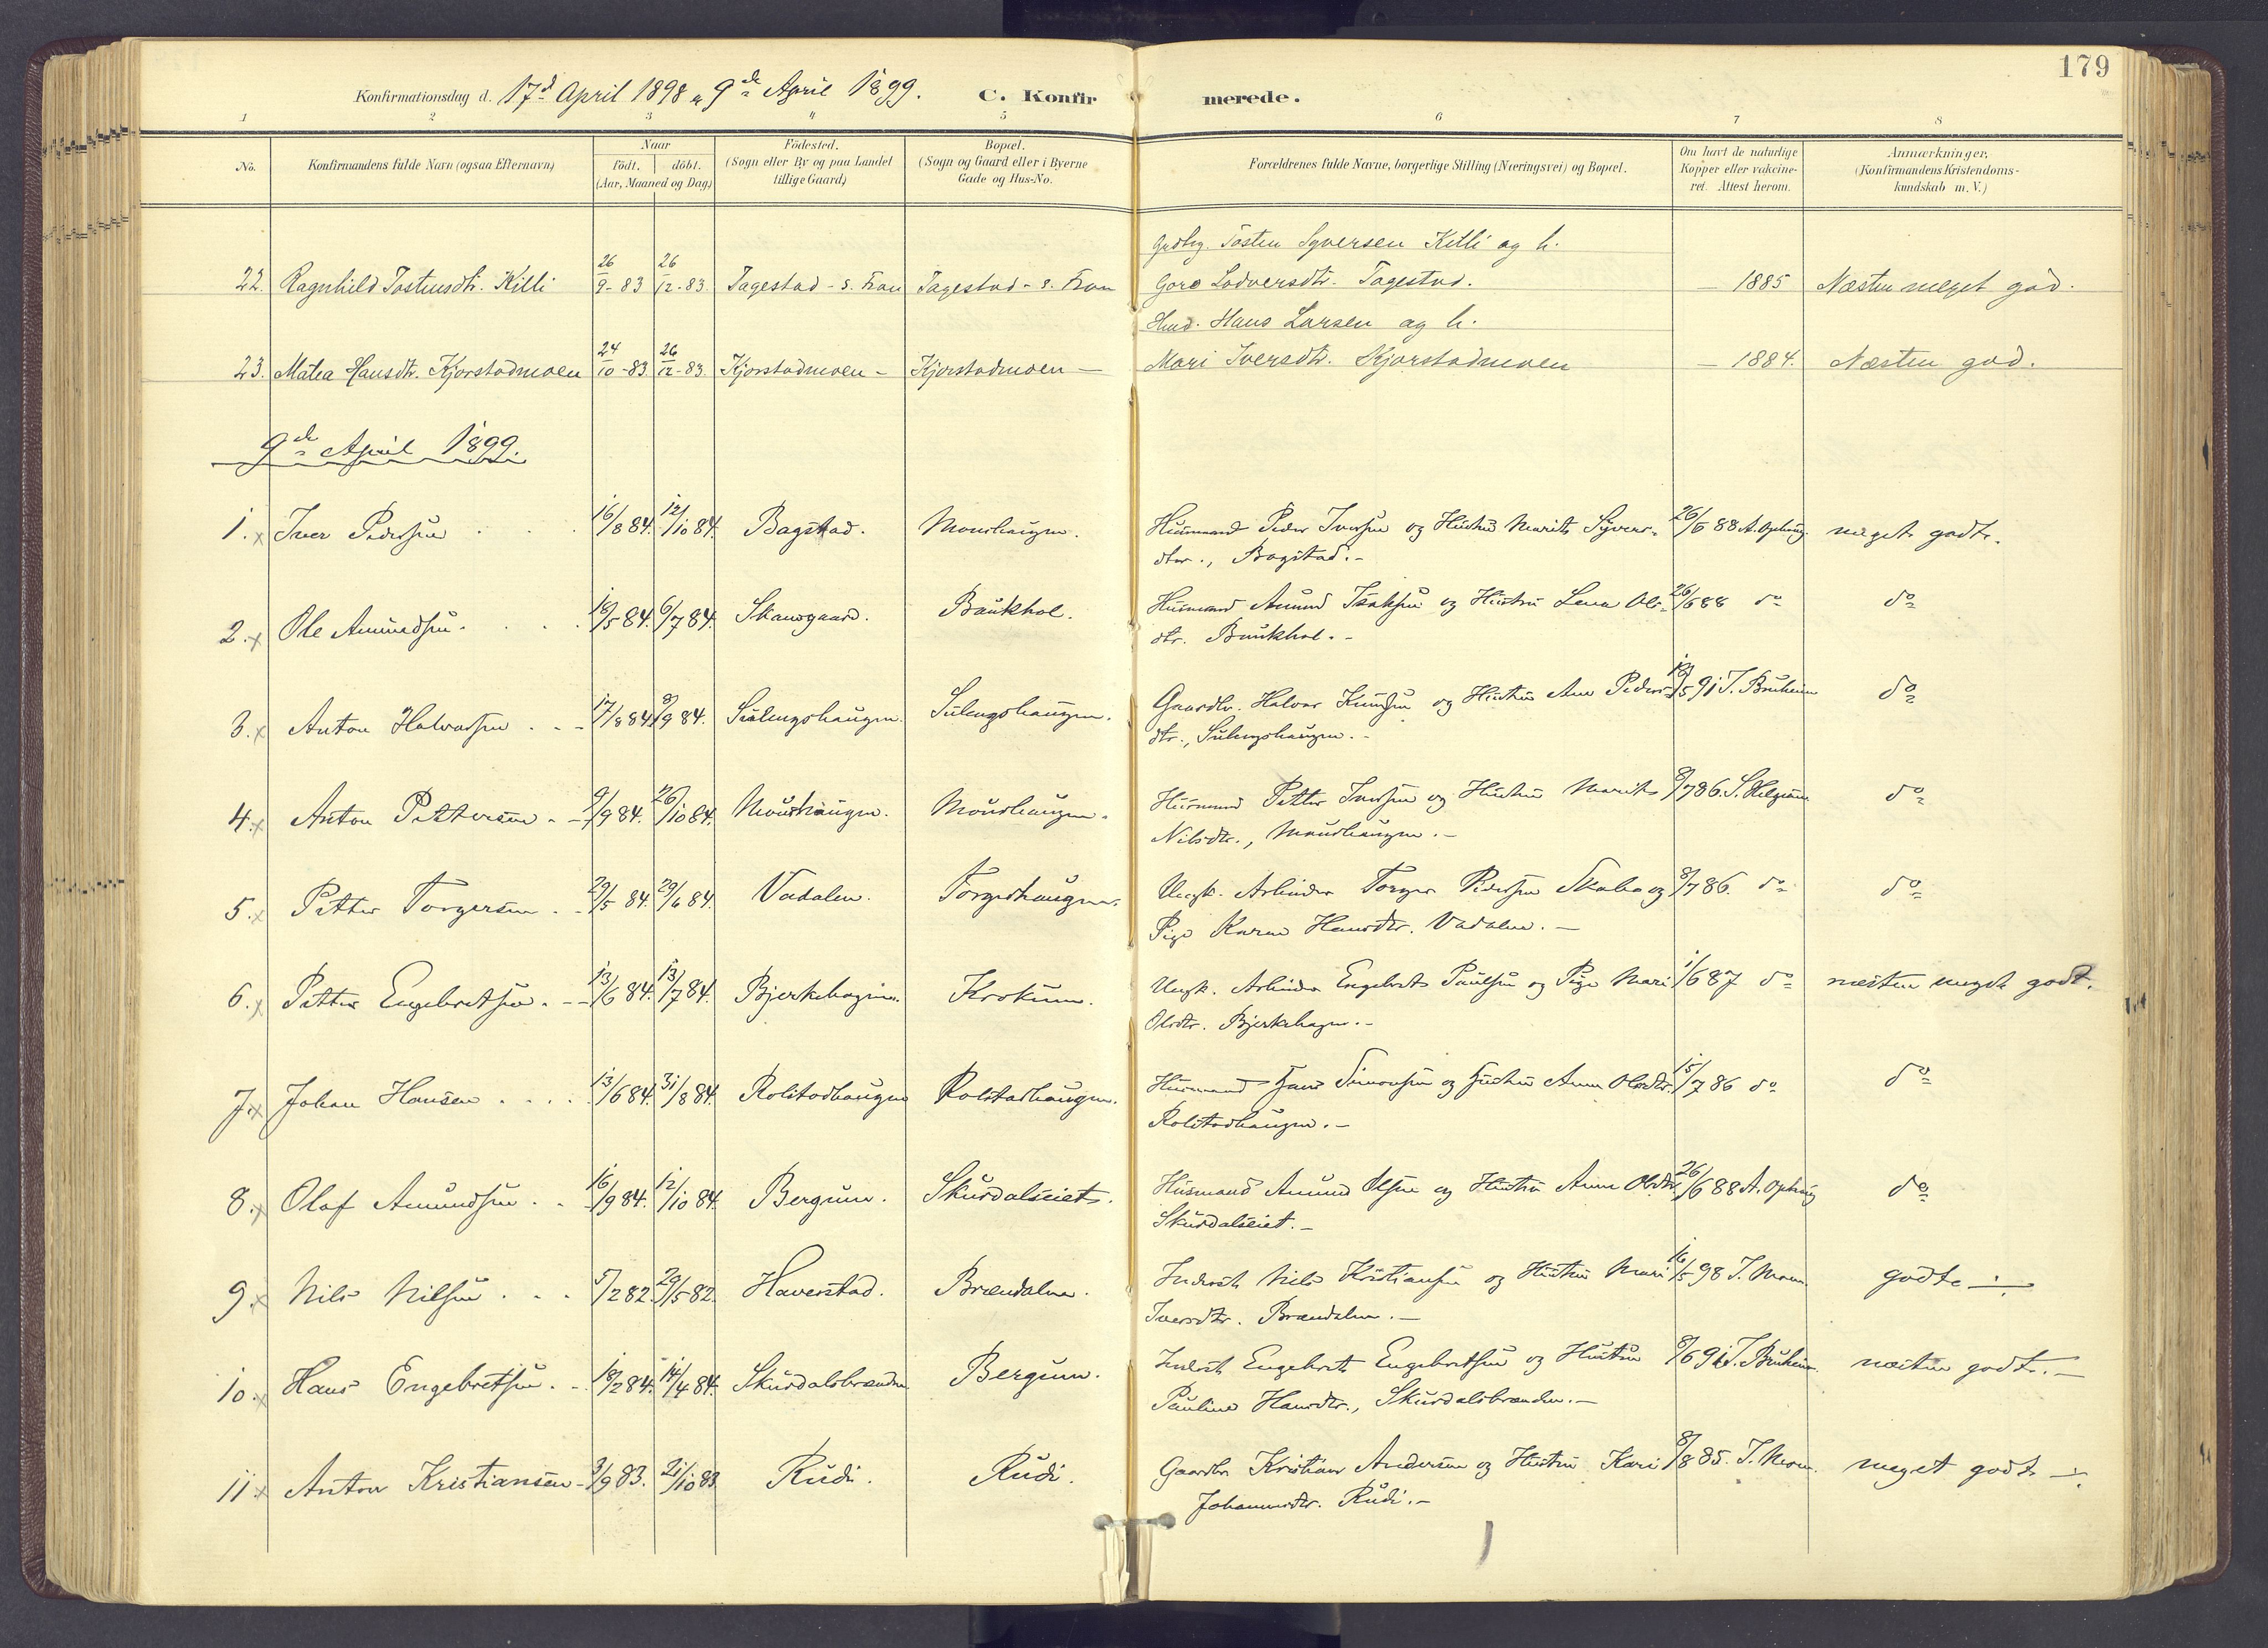 179
Konfirmationsdag d. 17d April 1898 & 9de April 1899. C. Konfirmerede.
1 2 3 4 5 6 7 8
No. Konfirmandens fulde Navn (ogsaa Efternavn) Naar födt. döbt. (Aar, Maaned og Dag) Födested. (Sogn eller By og paa Landet tillige Gaard) Bopæl. (Sogn og Gaard eller i Byerne Gade og Hus-No. Forældrenes fulde Navne, borgerlige Stilling (Næringsvei) og Bopæl. Om havt de naturlige Kopper eller vakcineret. Attest herom. Anmærkninger. (Konfirmandens Kristendomskundskab m. V.)
Grdbrg. Tosten Syversen Killi og h.
22. Ragnhild Tostensdtr. Killi 26/9-83 26/12-83. Tagestad - s. Fron Tagestad - s. Fron Goro Lodversdtr. Tagestad. — 1885 Næsten meget god.
Husd. Hans Larsen og h.
23. Matea Hansdtr. Kjorstadmoen 24/10-83 26/12-83. Kjorstadmoen - Kjorstadmoen — Mari Iversdtr. Kjorstadmoen — 1884. Næsten god.
9de April 1899.
1. x Iver Pedersen 16/8 84. 12/10 84. Bagstad. Moushaugen. Husmand Peder Iversen og Hustru Marit Syvers- 26/6 88 A. Ophaug. meget godt.
dtr., Bagstad. -
2. x Ole Amundsen. 18/5 84. 6/7 84. Skansgaard. Baukhol. Husmand Amund Isaksen og Hustru Lena Ols- 26/6 88 do do
dtr. Baukhol. -
3. x Anton Halvorsen 17/8 84. 9 84. Sulengshaugen. Sulengshaugen. Gaardbr. Halvor Knudsen og Hustru Ane Peders- 18/5 91 T. Bruheim do
dtr., Sulengshaugen. -
4. x Anton Pettersen 9/9 84. 26/10 84. Moushaugen. Moushaugen. Husmand Petter Iversen og Hustru Marit 8/7 86. do
Nilsdtr., Moushaugen. -
5. x Petter Torgersen 29/5 84. 29/6 84. Vadalen. Torgershaugen. Ungk. Arbeider Torger Pedersen Skabo og 8/7 86. do do
Pige Karen Hansdtr. Vadalen. -
6. x Petter Engebretsen 13/6 84. 13/7 84. Bjerkehagen. Krokum. Ungk. Arbeider Engebret Paulsen og Pige Mari 1/6 87 do næsten meget godt.
Olsdtr. Bjerkehagen. -
7. x Johan Hansen 13/6 84. 31/8 84. Rolstadhaugen Rolstadhaugen. Husmand Hans Simonsen og Hustru Anne Olsdtr. 15/7 86 do do
Rolstadhaugen. -
8. x Olaf Amundsen 16/9 84. 12/10 84. Bergum. Skurdalseiet. Husmand Amund Olsen og Hustru Anne Olsdtr. 26/6 88 A. Ophaug do
Skurdalseiet. -
9. x Nils Nilsen 5/2 82. 29/5 82. Haverstad. Brændalen. Inderst Nils Kristiansen og Hustru Mari 16/5 98 T. Moum godt. -
Iversdtr. Brændalen. -
10. x Hans Engebretsen 18/2 84. 14/4 84. Skurdalsbrænden Bergum. Inderst Engebret Engebretsen og Hustru 8/6 91 T. Bruheim næsten godt. -
Pauline Hansdtr., Skurdalsbrænden. -
11. x Anton Kristiansen 3/9 83. 21/10 83 Rudi. Rudi. Gaardbr. Kristian Andersen og Hustru Kari 8/8 85. T. Moum. meget godt -
Johannesdtr. Rudi. -